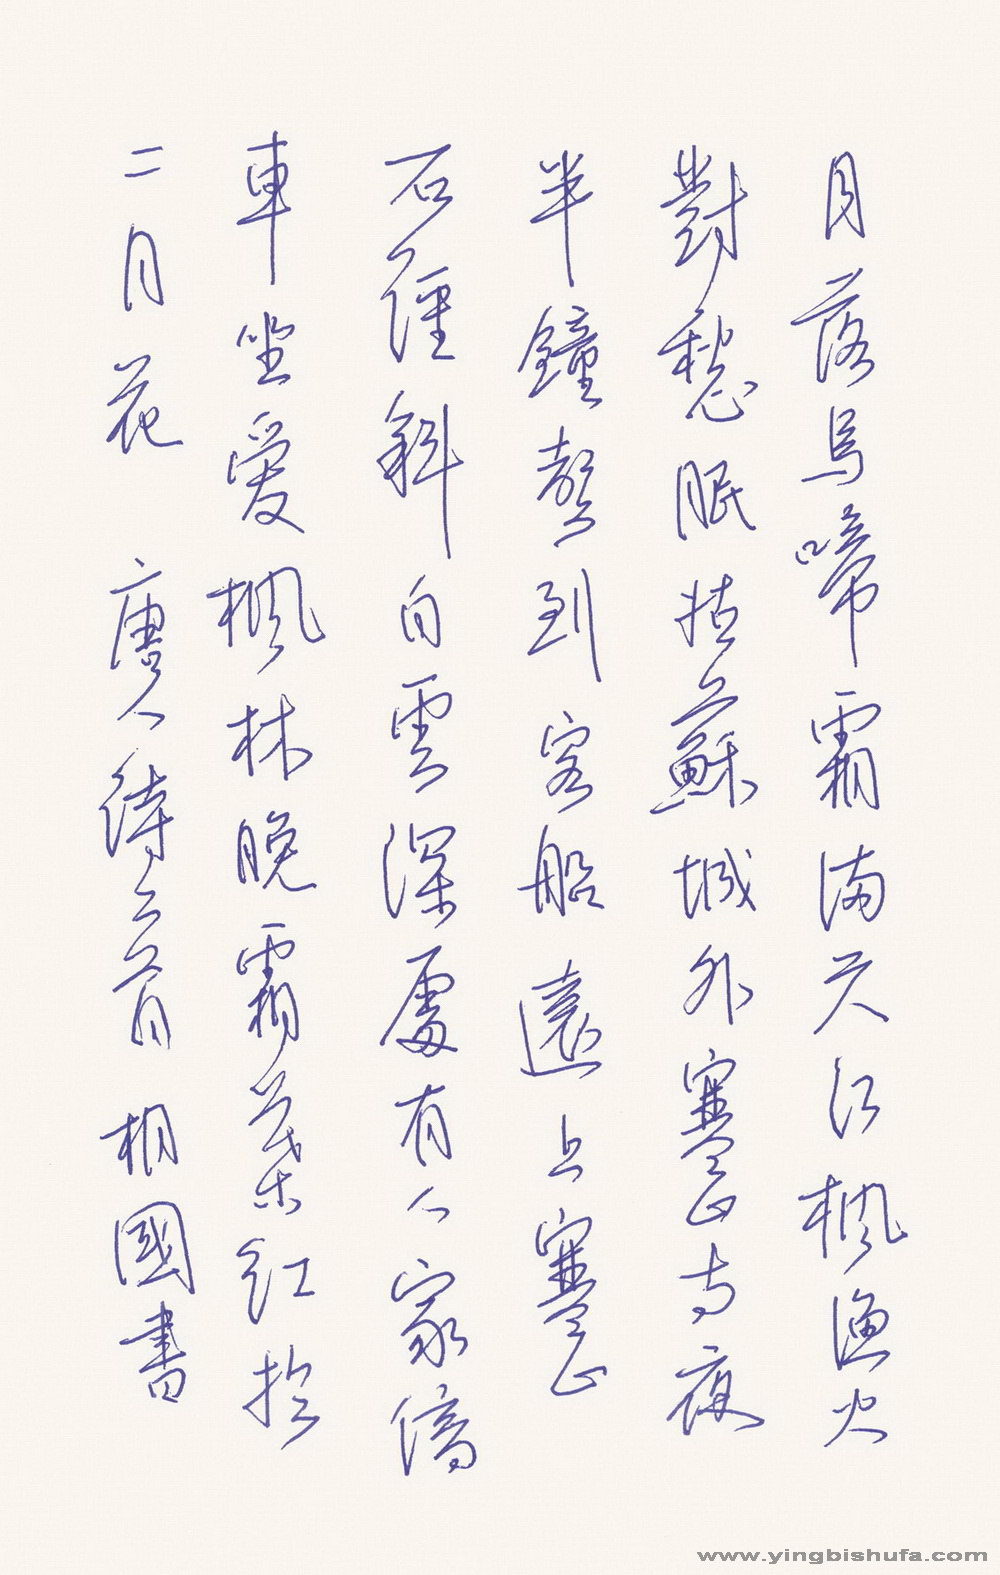 月落烏啼霜滿天江楓漁火
對愁眠姑蘇城外寒山寺夜
半鐘聲到客船遠上寒山
石徑斜白雲深處有人家停
車坐愛楓林晚霜葉紅於
二月花 唐人詩二首 相國書
www.yingbishufa.com